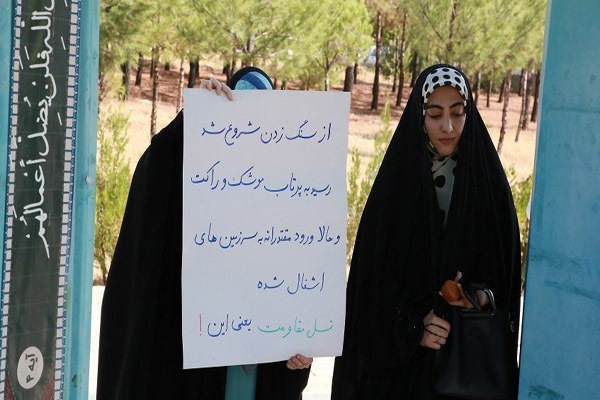 الله فلن يضل أعمالهم
آیه ۴
از سنگ زدن شروع شد
رسید به پرتاب موشک و راکت
و حالا ورود مقتدرانه به سرزمین های
اشغال شده
نسل مقاومت یعنی این!